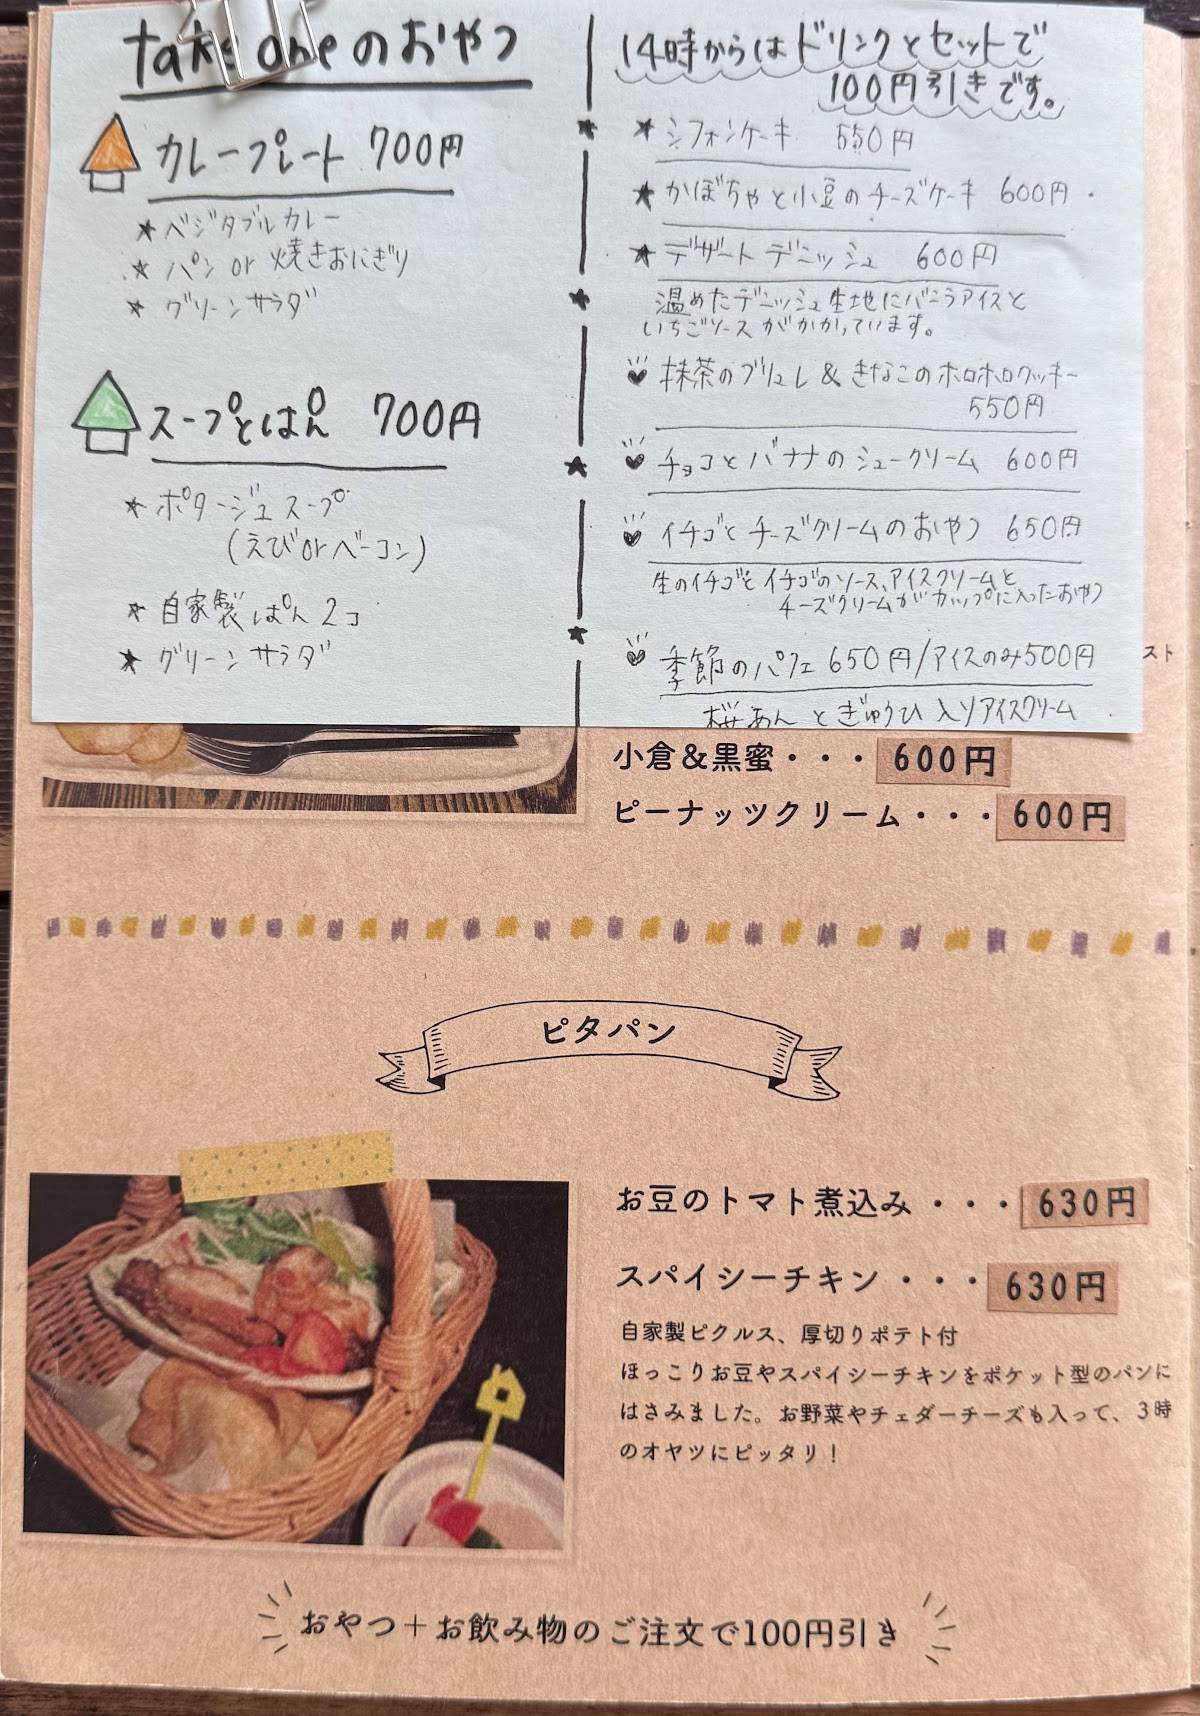 take oneのおやつ
カレープレート 700円
★ベジタブルカレー
★パン or 焼きおにぎり
★グリーンサラダ
スープとぱん 700円
★ポタージュスープ
(えびorベーコン)
★自家製ぱん2コ
★グリーンサラダ
14時からはドリンクとセットで
100円引きです。
★シフォンケーキ 550円
★かぼちゃと小豆のチーズケーキ 600円
★デザートデニッシュ 600円
温めたデニッシュ生地にバニラアイスと
いちごソースがかかっています。
抹茶のブリュレ&きなこのホロホロクッキー
550円
チョコとバナナのシュークリーム 600円
イチゴとチーズクリームのおやつ 650円
生のイチゴとイチゴのソース、アイスクリームと
チーズクリームがカップに入ったおやつ
季節のパフェ 650円/アイスのみ500円
桜あんとぎゅうひ入りアイスクリーム
スト
小倉&黒蜜・・・600円
ピーナッツクリーム・・・600円
ピタパン
お豆のトマト煮込み・・・630円
スパイシーチキン・・・630円
自家製ピクルス、厚切りポテト付
ほっこりお豆やスパイシーチキンをポケット型のパンに
はさみました。お野菜やチェダーチーズも入って、3時
のオヤツにピッタリ!
おやつ+お飲み物のご注文で100円引き